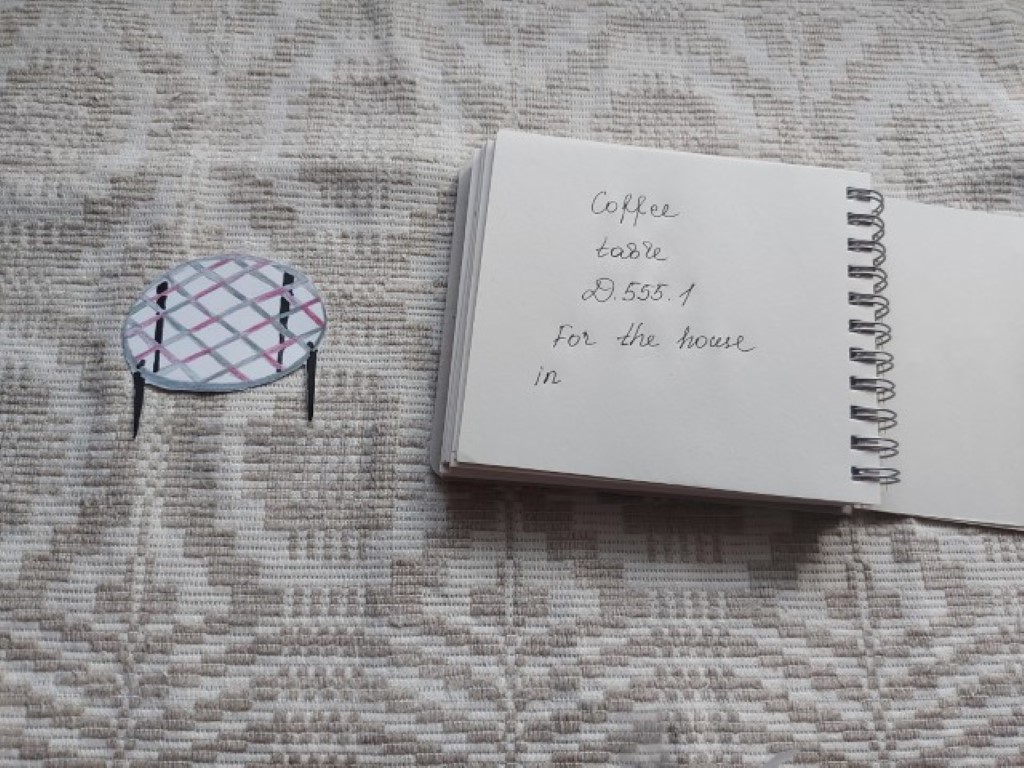 Coffee
table
D.555.1
For the house
in